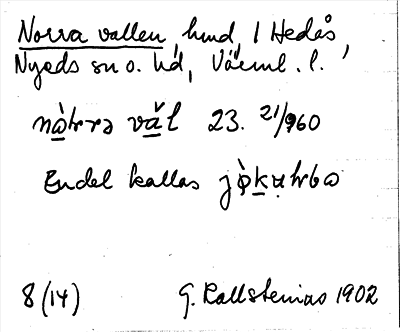 Norra vallen, hmd, 1 Hedås,
Nyeds sn o. hd, Värml. l.
nò̱hrrə vǎ̱l 23. 21/960
Endel kallas
8 (14) G. Kallstenius 1902